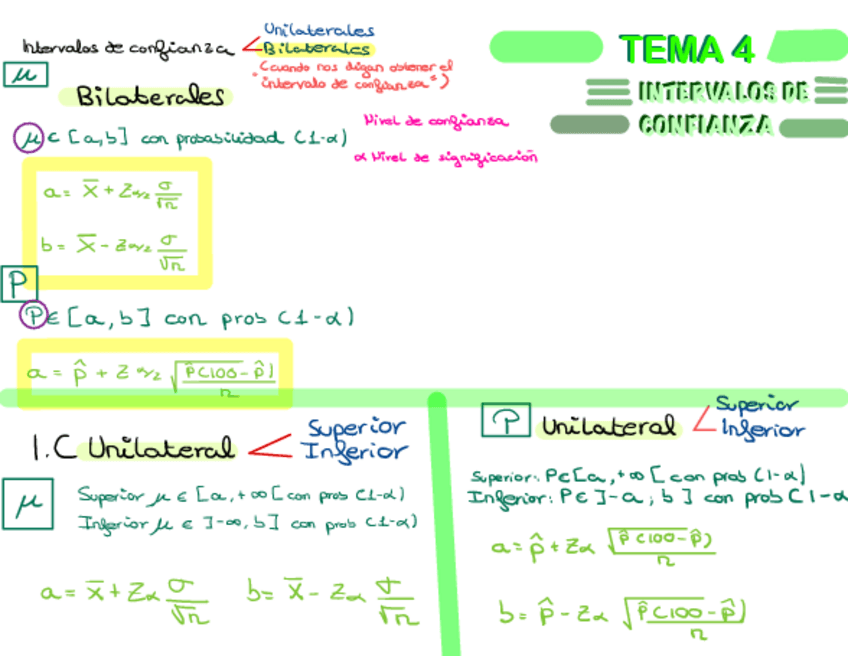 Intervalos de confianza < Unilaterales
Bilaterales
(Cuando nos digan obtener el
"intervalo de confianza")
TEMA 4
INTERVALOS DE
CONFIANZA
μ
Bilaterales
μ ∈ [a,b] con probabilidad (1-α)
Nivel de confianza
α Nivel de significación
a = x̄ + Z α/2 σ/√n
b = x̄ - Z α/2 σ/√n
P
P ∈ [a, b] con prob (1-α)
a = p̂ + Z α/2 √p̂(100-p̂)/n
I.C Unilateral < Superior
Inferior
μ
Superior μ ∈ [a, +∞[ con prob (1-α)
Inferior μ ∈ ]-∞, b] con prob (1-α)
a = x̄ + Zα σ/√n b = x̄ - Zα σ/√n
P Unilateral < Superior
Inferior
Superior: P∈[a, +∞[ con prob (1-α)
Inferior: P∈ ]-a; b] con prob (1-α
a = p̂ + Zα √p̂(100-p̂)/n
b = p̂ - Zα √p̂(100-p̂)/n